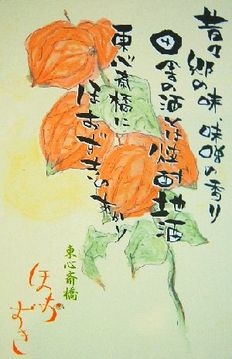 昔々郷の味、味噌の香り
田舎の酒とは焼酎地酒
東心斎橋に
ほおずきのあかり
東心斎橋
ほおずき